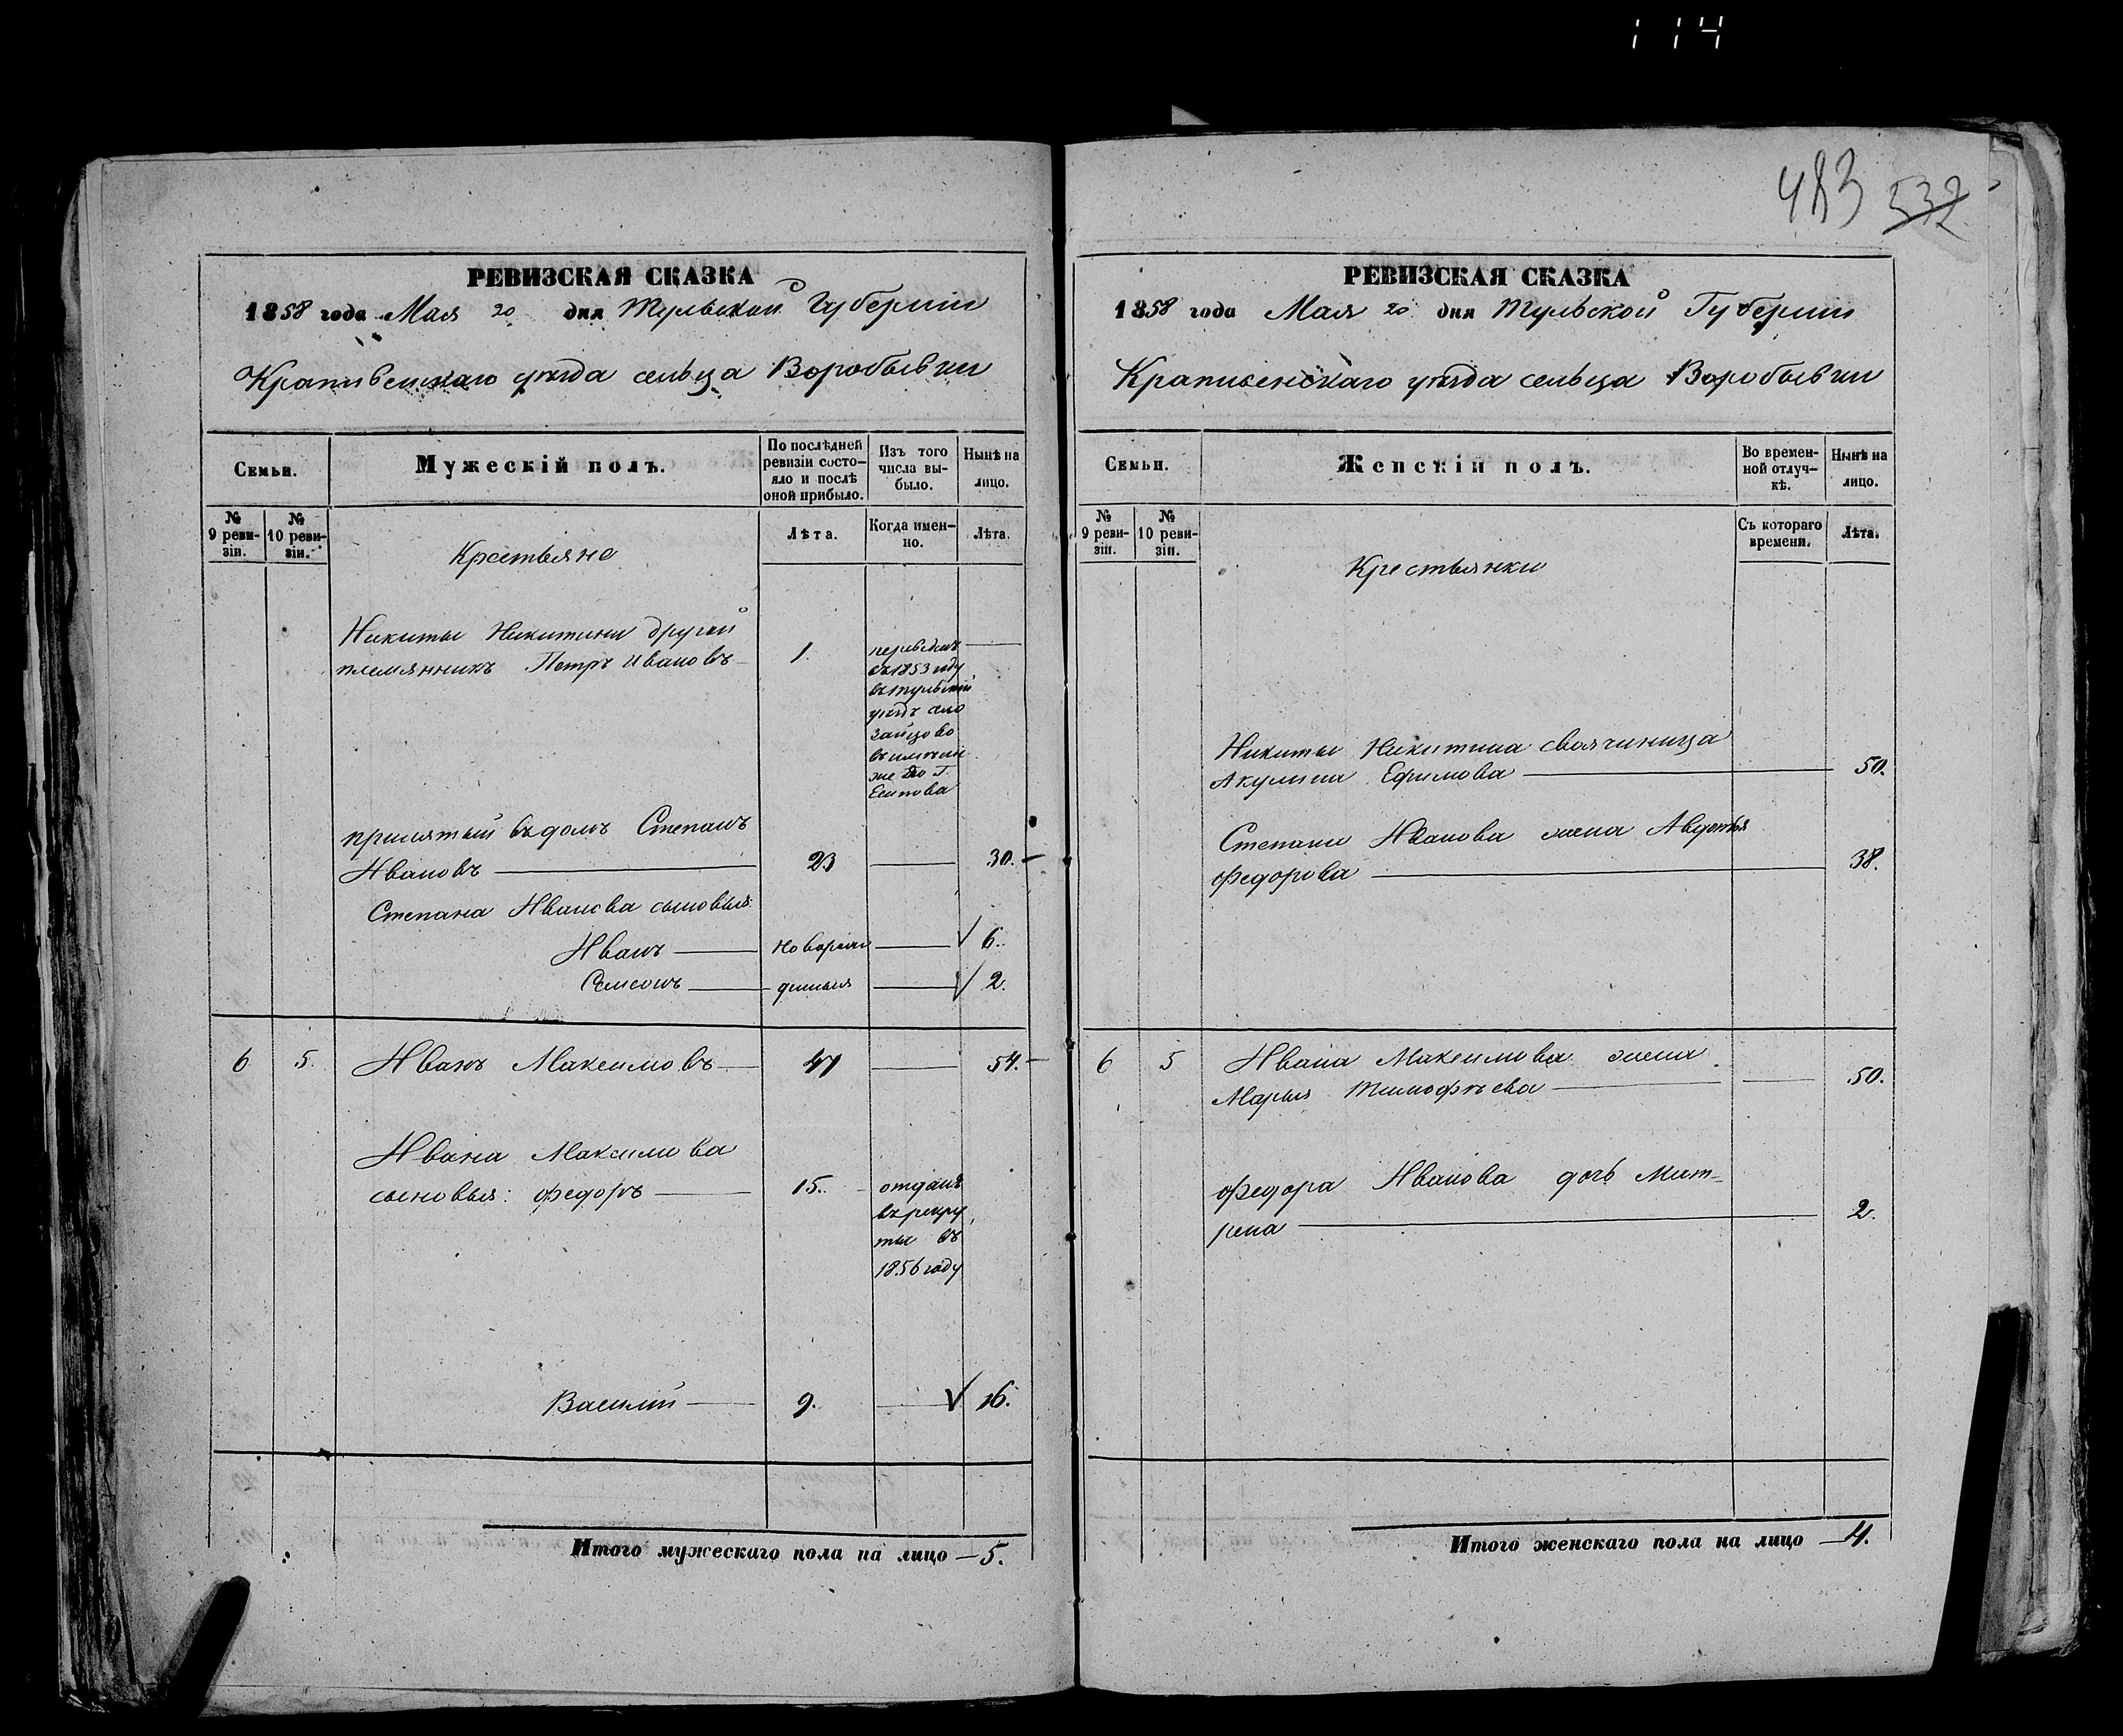 114
483 532
РЕВИЗСКАЯ СКАЗКА
1858 года Мая 20 дня Тульской Губернии
Крапивенскаго уѣзда сельца Воробьевки
Семьи.
Мужескій полъ.
По послѣдней
ревизіи состо-
яло и послѣ
оной прибыло.
Изъ того
числа вы-
было.
Нынѣ на
лицо.
№
9 реви-
зіи.
№
10 реви-
зіи.
Лѣта.
Когда имен-
но.
Лѣта.
Крестьяне
Никиты Никитина другой
племянникъ Петръ Ивановъ 1.
переведенъ
въ 1853 году
въ тульской
уѣздъ село
Зайцово
въ имѣніи
Есипова
принятый въ домъ Степанъ
Ивановъ 23 30.
Степана Иванова сыновья
Иванъ новорож 6.
Самсонъ денныя 2.
6 5. Иванъ Максимовъ 47 54.
Ивана Максимова
сыновья: Федоръ 15.
отданъ
въ рекру
ты въ
1856 году
Василий 9. 16.
Итого мужескаго пола на лицо 5.
РЕВИЗСКАЯ СКАЗКА
1858 года Мая 20 дня Тульской Губернии
Крапивенскаго уѣзда сельца Воробьевки
Семьи.
Женскій полъ.
Во времен-
ной отлуч-
кѣ.
Нынѣ на
лицо.
№
9 реви-
зіи.
№
10 реви-
зіи.
Съ котораго
времени.
Лѣта.
Крестьянки
Никиты Никитина своячиница
Акулина Ефимова 50.
Степана Иванова жена Авдотья
Федорова 38.
6 5 Ивана Максимова жена
Марья Тимофѣева 50.
Федора Иванова дочь Мат-
рена 2.
Итого женскаго пола на лицо 4.